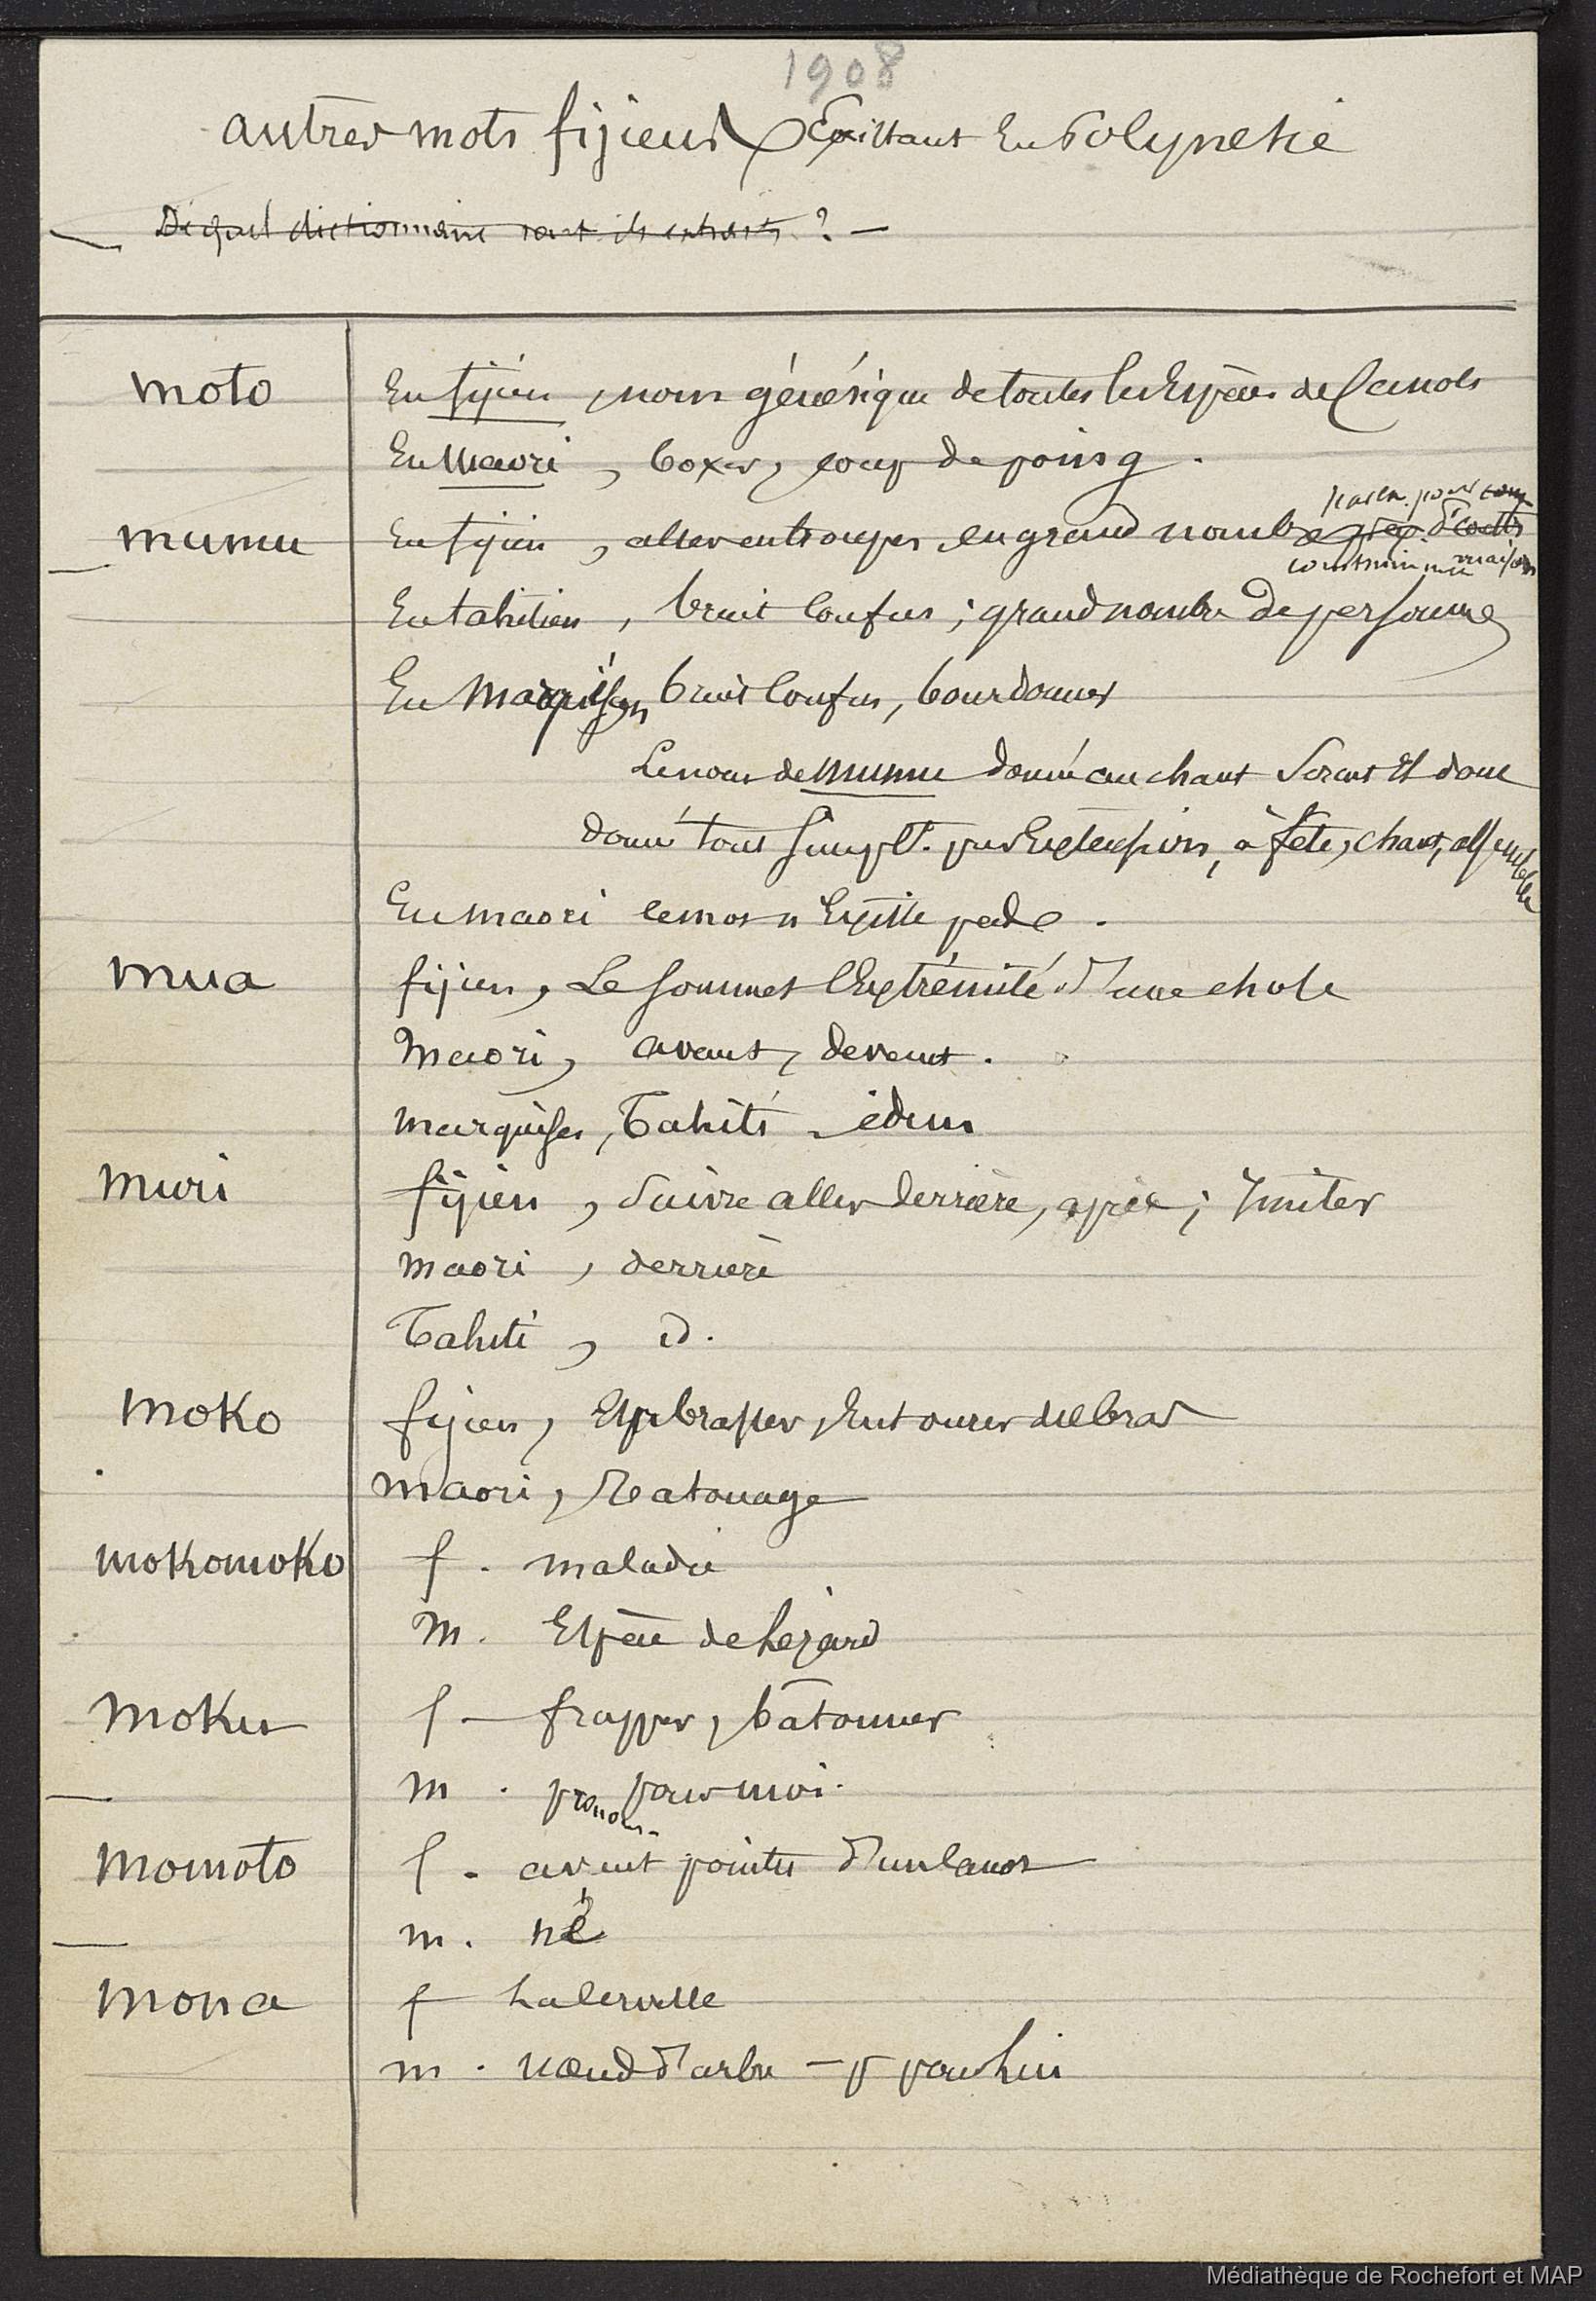 1908
autres mots fijiens Existant En Polynesie
De quel dictionnaire sont ils extraits ? —
moto
En fijien, nom générique de toutes les Espèces de Canots
En Maori, boxer, coup de poing.
mumu
En fijien, aller en troupes en grand nombre
pour
construire une maison
En tahitien, bruit Confus ; grand nombre de personnes
En Marquisien bruit Confus, bourdonner
Le nom de mumu donné au chant Est donc
donné tout simplt. par Extension, à fête, chant, assemblée
En maori le mot n'Existe pas.
mua
fijien, Le sommet l'Extrémité d'une chose
Maori, avant, devant.
Marquises, Tahiti - idem
muri
fijien, Suivre aller derrière, après ; Imiter
maori, derrière
Tahiti, id.
moko
fijien, Embrasser, Entourer des bras
maori, Tatouage
mokomoko
f. maladie
m. Espèce de Lézard
moku
f — frapper, bâtonner
m. pronom pour moi.
momoto
f. avant pointu d'un Canot
m. né
mona
f La Cervelle
m. nœud d'arbre — p pour lui
Médiathèque de Rochefort et MAP